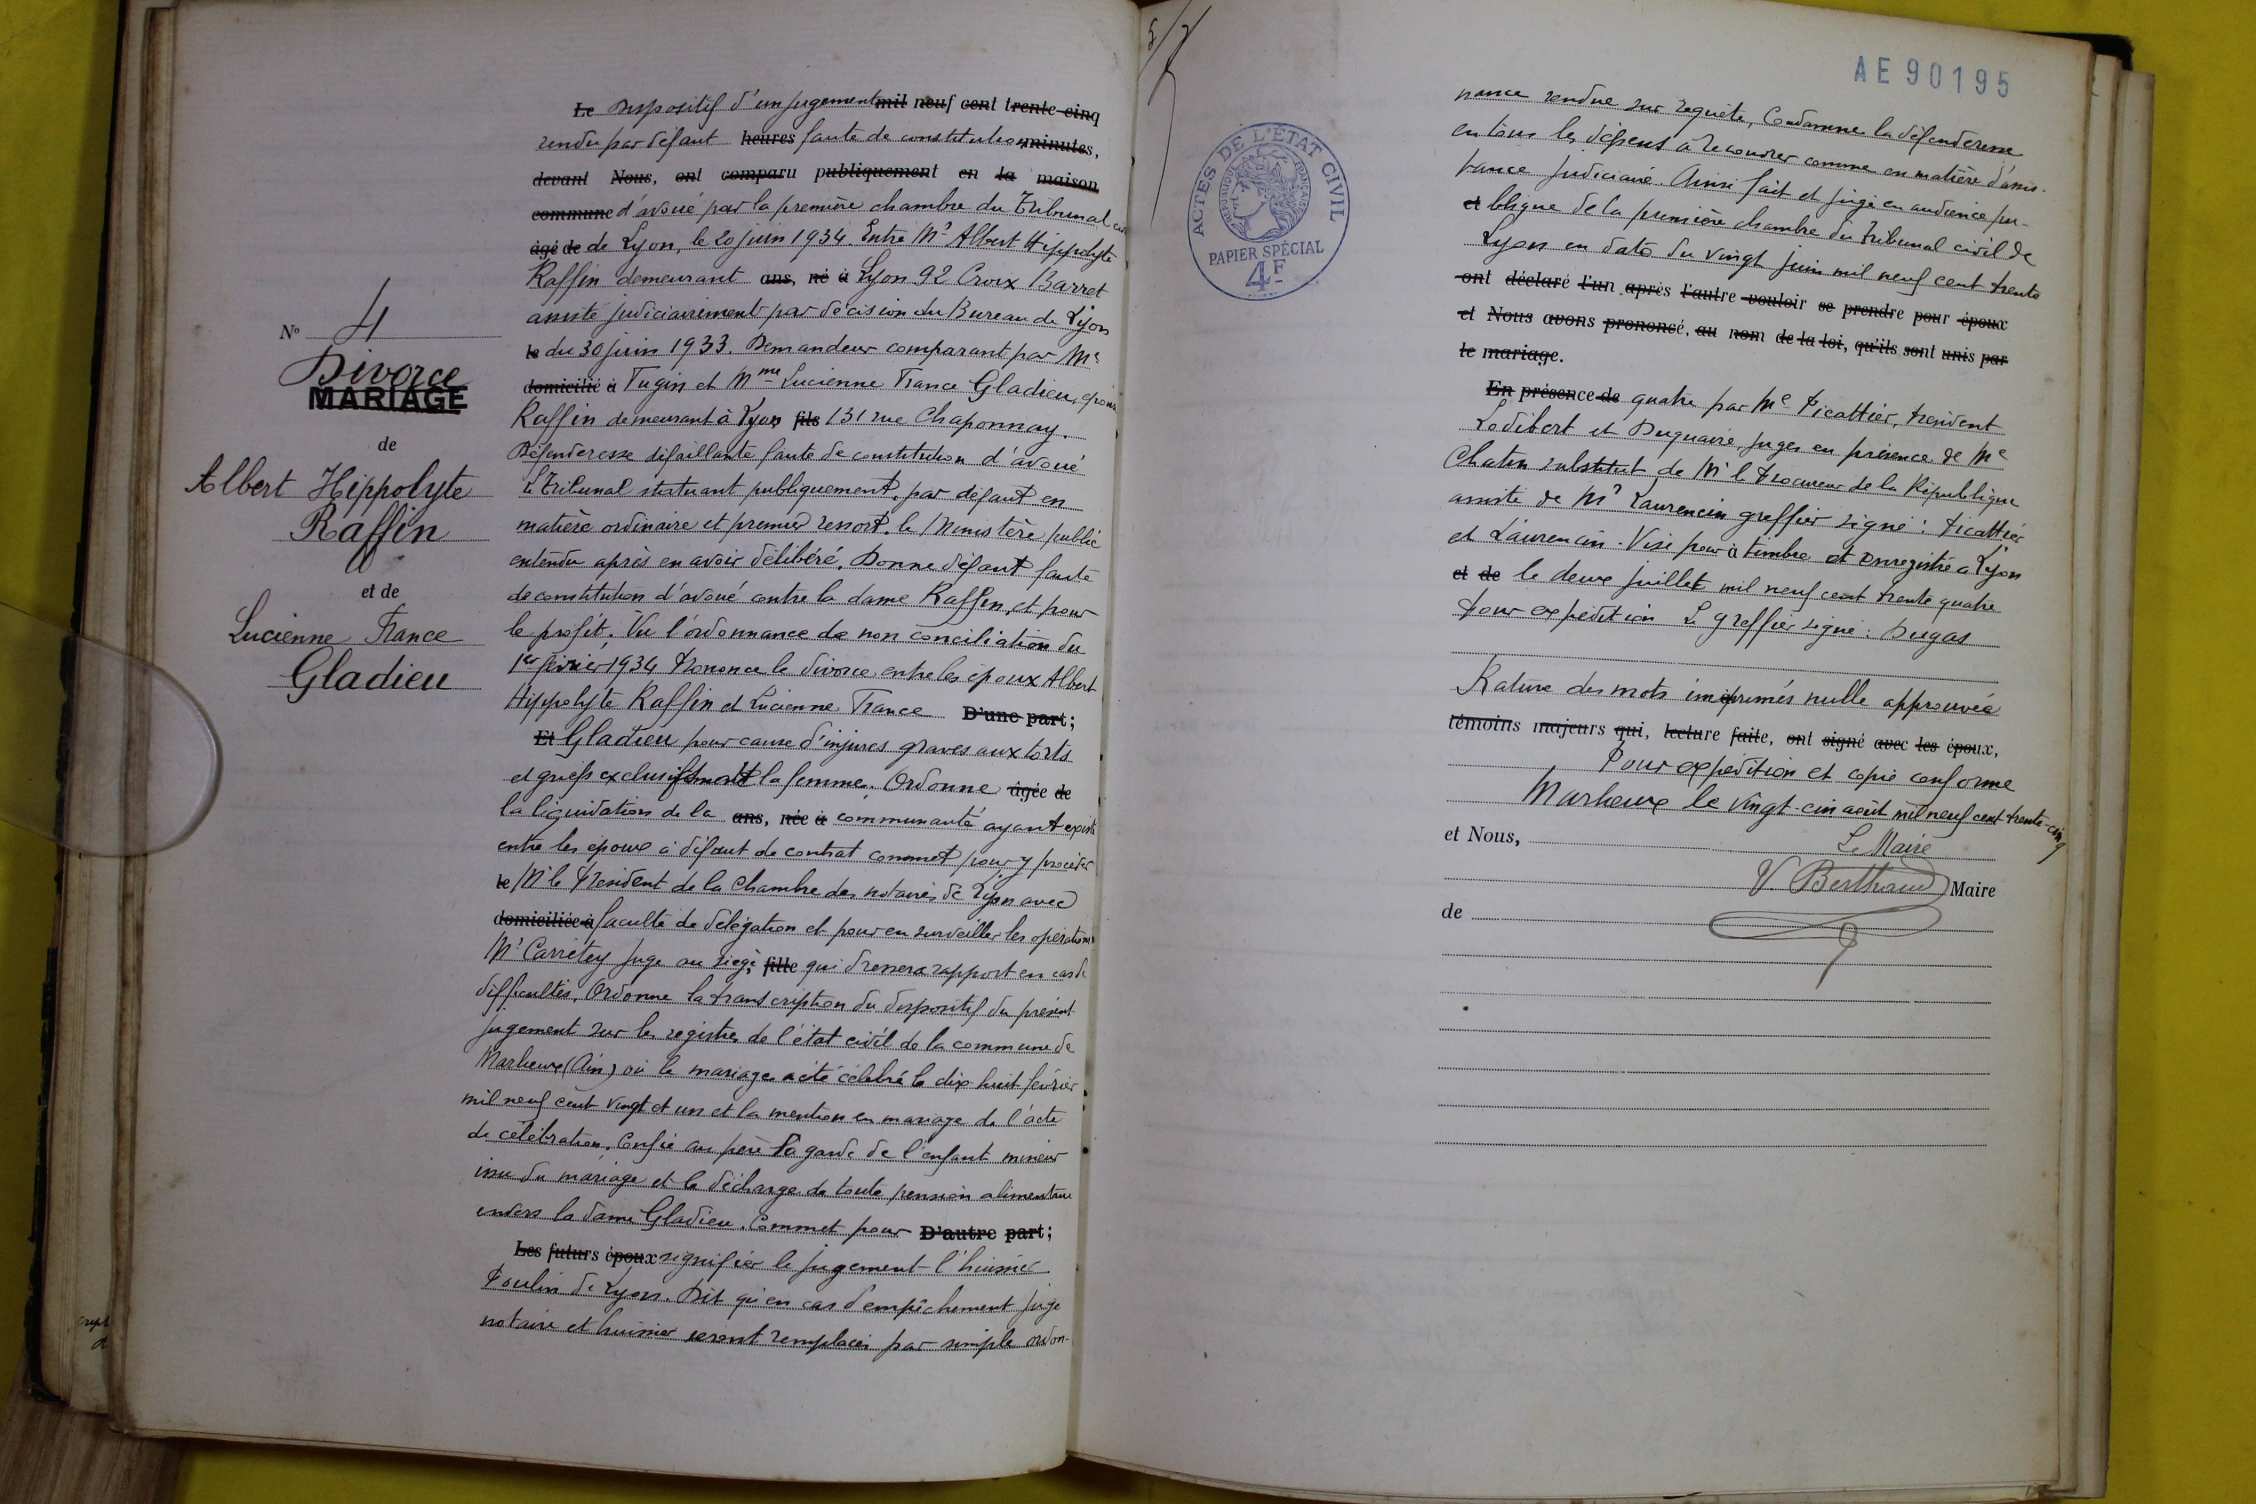 N° 4
Divorce
MARIAGE
de
Albert Hippolyte
Raffin
et de
Lucienne France
Gladieu
Le Dispositif d'un jugement mil neuf cent trente-cinq
rendu par défaut heures faute de constitution minutes,
devant Nous, ont comparu publiquement en la maison
commune d'avoué par la première chambre du Tribunal
âgé de de Lyon, le 20 juin 1934. Entre Mr Albert Hippolyte
Raffin demeurant ans, né à Lyon 92 Croix Barret
assisté judiciairement par décision du Bureau de Lyon
le du 30 juin 1933. Demandeur comparant par Me
domicilié à Tugin et Mme Lucienne France Gladieu, épouse
Raffin demeurant à Lyon fils 131 rue Chaponnay.
Défenderesse défaillante faute de constitution d'avoué
Le Tribunal statuant publiquement, par défaut en
matière ordinaire et premier ressort. le Ministère public
entendu après en avoir délibéré. Donne défaut faute
de constitution d'avoué contre la dame Raffin, et pour
le profit. Vu l'ordonnance de non conciliation du
1er février 1934 Prononce le divorce entre les époux Albert
Hippolyte Raffin et Lucienne France D'une part;
Et Gladieu pour cause d'injures graves aux torts
et griefs exclusifs de la femme. Ordonne âgée de
la liquidation de la ans, née à communauté ayant existé
entre les époux à défaut de contrat commet pour y procéder
le Mr le Président de la Chambre des notaires de Lyon avec
domiciliée à faculté de délégation et pour en surveiller les opérations
Mr Carretey juge au siège, fille qui dressera rapport en cas de
difficultés. Ordonne la transcription du dispositif du présent
jugement sur les registres de l'état civil de la commune de
Marlieux (Ain) où le mariage a été célébré le dix huit février
mil neuf cent vingt et un et la mention en mariage de l'acte
de célébration. Confie au père la garde de l'enfant mineur
issu du mariage et le décharge de toute pension alimentaire
envers la dame Gladieu. Commet pour D'autre part;
Les futurs époux signifier le jugement l'huissier
Poulin de Lyon. Dit qu'en cas d'empêchement juge
notaire et huissier seront remplacés par simple ordon-
AE90195
ACTES DE L'ÉTAT CIVIL
RÉPUBLIQUE FRANÇAISE
PAPIER SPÉCIAL
4F
nance rendue sur requête, Condamne la défenderesse
en tous les dépens à recouvrer comme en matière d'assis-
tance judiciaire. Ainsi fait et jugé en audience pu-
et blique de la première chambre du tribunal civil de
Lyon en date du vingt juin mil neuf cent trente
ont déclaré l'un après l'autre vouloir se prendre pour époux
et Nous avons prononcé, au nom de la loi, qu'ils sont unis par
le mariage.
En présence de quatre par Me Picattier, Président
Lodibert et Duquaire, juges en présence de Me
Chatin substitut de Mr le Procureur de la République
assisté de Mr Laurencin greffier signé: Picattier
et Laurencin. Visé pour à timbre et enregistré à Lyon
et de le deux juillet mil neuf cent trente quatre
Pour expédition Le greffier signé: Dugas
Rature des mots imprimés nulle approuvée
témoins majeurs qui, lecture faite, ont signé avec les époux,
Pour expédition et copie conforme
Marlieux le vingt-cinq août mil neuf cent trente-cinq
et Nous,
Le Maire
V. Berthaud Maire
de